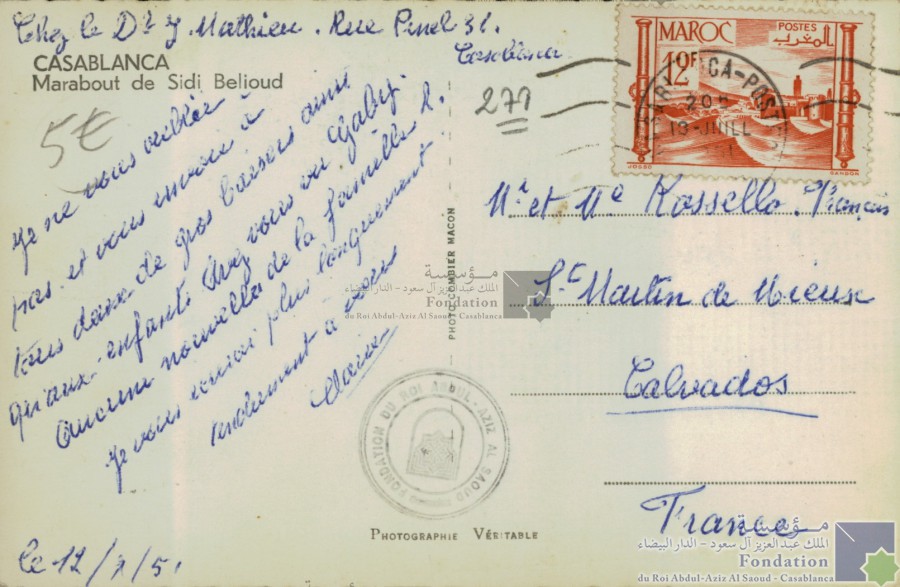 Chez le Dr J. Mathieu. Rue Pinel 31.
Casablanca
CASABLANCA
Marabout de Sidi Belioud
5€
271
MAROC
POSTES
المغرب
12F
CASABLANCA-POSTES
13-JUILL
Je ne vous oublie
pas et vous envoie à
tous deux de gros baisers ainsi
qu'aux enfants. Avez vous eu Gaby.
Aucune nouvelle de la famille R.
Je vous écrirai plus longuement
tendrement à vous
Claire
Le 12/7/51
PHOTO COMBIER MACON
PHOTOGRAPHIE VÉRITABLE
Mr et Me Rossello. François
St Martin de Mieux
Calvados
France
FONDATION DU ROI ABDUL-AZIZ AL SAOUD
مؤسسة
الملك عبد العزيز آل سعود - الدار البيضاء
Fondation
du Roi Abdul-Aziz Al Saoud - Casablanca
مؤسسة
الملك عبد العزيز آل سعود - الدار البيضاء
Fondation
du Roi Abdul-Aziz Al Saoud - Casablanca